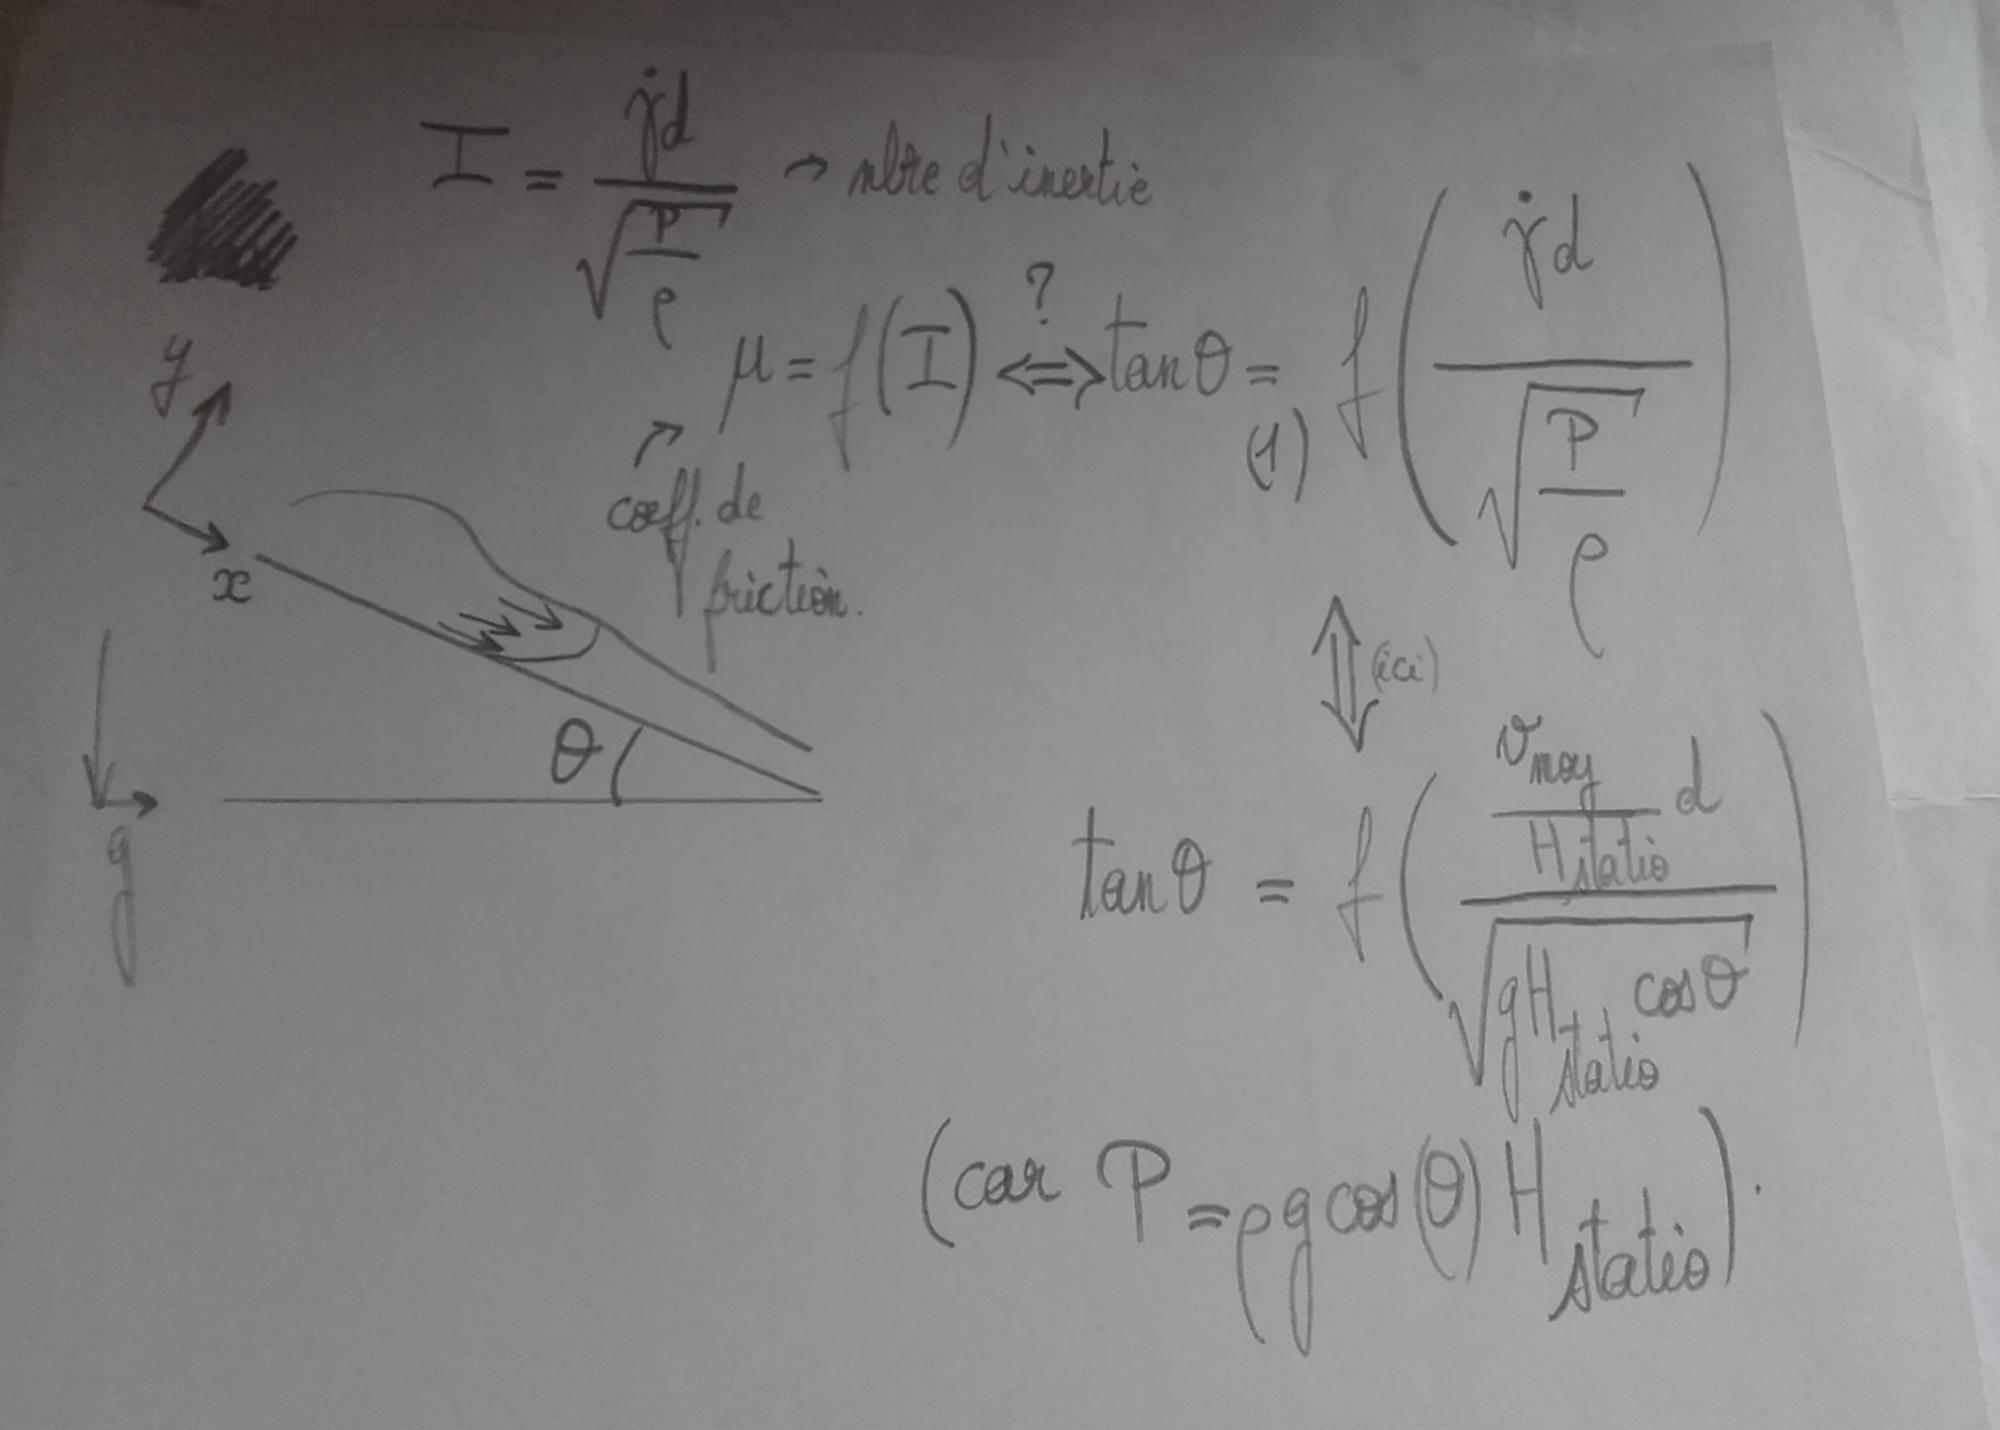 I = γ̇d / √(P/ρ) → nbre d'inertie
μ = f(I) ⇔? tanθ =(1) f( γ̇d / √(P/ρ) )
coeff. de
friction.
y
x
θ
g
⇕ (ici)
tanθ = f( (v_moy / H_statio) d / √(gH_statio cosθ) )
(car P = ρg cos(θ) H_statio).